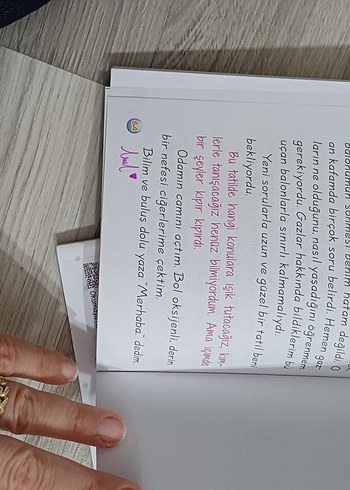 balonumun sönmesi benim hatam değildi. O
an kafamda birçok soru belirdi. Hemen gaz-
ların ne olduğunu, nasıl yaşadığını öğrenmem
gerekiyordu. Gazlar hakkında bildiklerim bu
uçan balonlarla sınırlı kalmamalıydı.
Yeni sorularla uzun ve güzel bir tatil beni
bekliyordu.
Bu tatilde hangi konulara ışık tutacağız, kim-
lerle tanışacağız henüz bilmiyordum. Ama içimde
bir şeyler kıpır kıpırdı.
Odamın camını açtım. Bol oksijenli, derin
bir nefesi ciğerlerime çektim.
Bilim ve buluş dolu yaza "Merhaba" dedim.
64